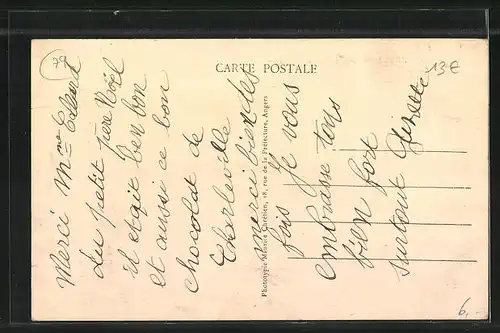 75
13€
CARTE POSTALE
Merci Mme
du petit père Noël
il était bien bon
et aussi ce bon
chocolat de
Charleville
merci bien des
fois Je vous
embrasse tous
bien fort
surtout Gisette
Phototypie Maurice Chrétien, 18, rue de la Préfecture, Angers
6,-